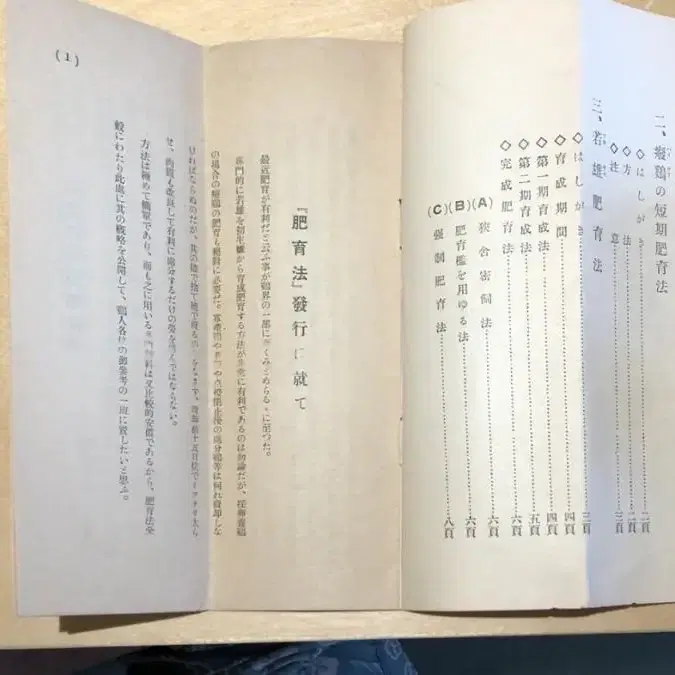 二、癈鶏の短期肥育法
◇はしがき……二頁
◇方法……二頁
◇注意……三頁
三、若雄肥育法
◇はしがき……三頁
◇育成期間……四頁
◇第一期育成法……四頁
◇第二期育成法……五頁
◇完成肥育法……六頁
(A)狹舍密飼法……六頁
(B)肥育檻を用ゆる法……六頁
(C)强制肥育法……八頁
『肥育法』發行に就て
最近肥育が有利だと云ふ事が鷄界の一部に
に至つた。
専門的に若雄を初生雛から育成肥育する方法が非常に有利であるのは勿論だが、採卵養鷄
の場合の癈鷄の肥育も絶對に必要だ。
ければならぬのだが、其の儘で捨て値で
せ、肉質も改良して有利に處分するだけの
ではならない。
方法は極めて簡單であり、而も之に用いる
飼料は又比較的安價であるから、肥育法全
般にわたり此處に其の戰略を公開して、鷄人各位の御參考の一班に資したいと思ふ。
(1)